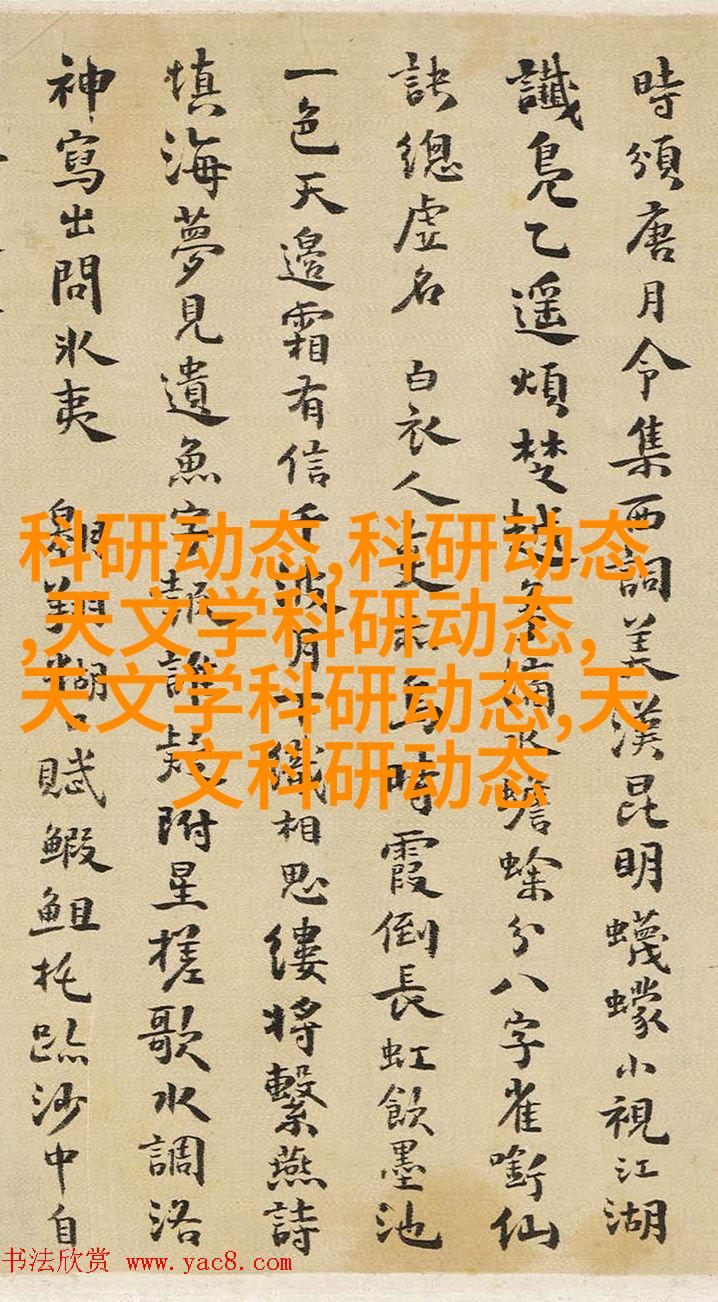 時頒唐月令集西詞美漢昆明蠛蠓小視江湖
讖鳧乙遥煩楚越蟾蜍分八字雀銜仙
訣總虚名 白衣人時霞倒長虹飲墨池
一色天邊霜有信千波月千織相思縷將繫燕詩
慎海夢見遺魚字瓶誰疑附星槎歌水調洛
神寫出問冰夷 翱翔賦鰕䱉托跡沙中自
科研动态,科研动态
,天文学科研动态,
天文学科研动态,天
文科研动态
书法欣赏 www.yac8.com